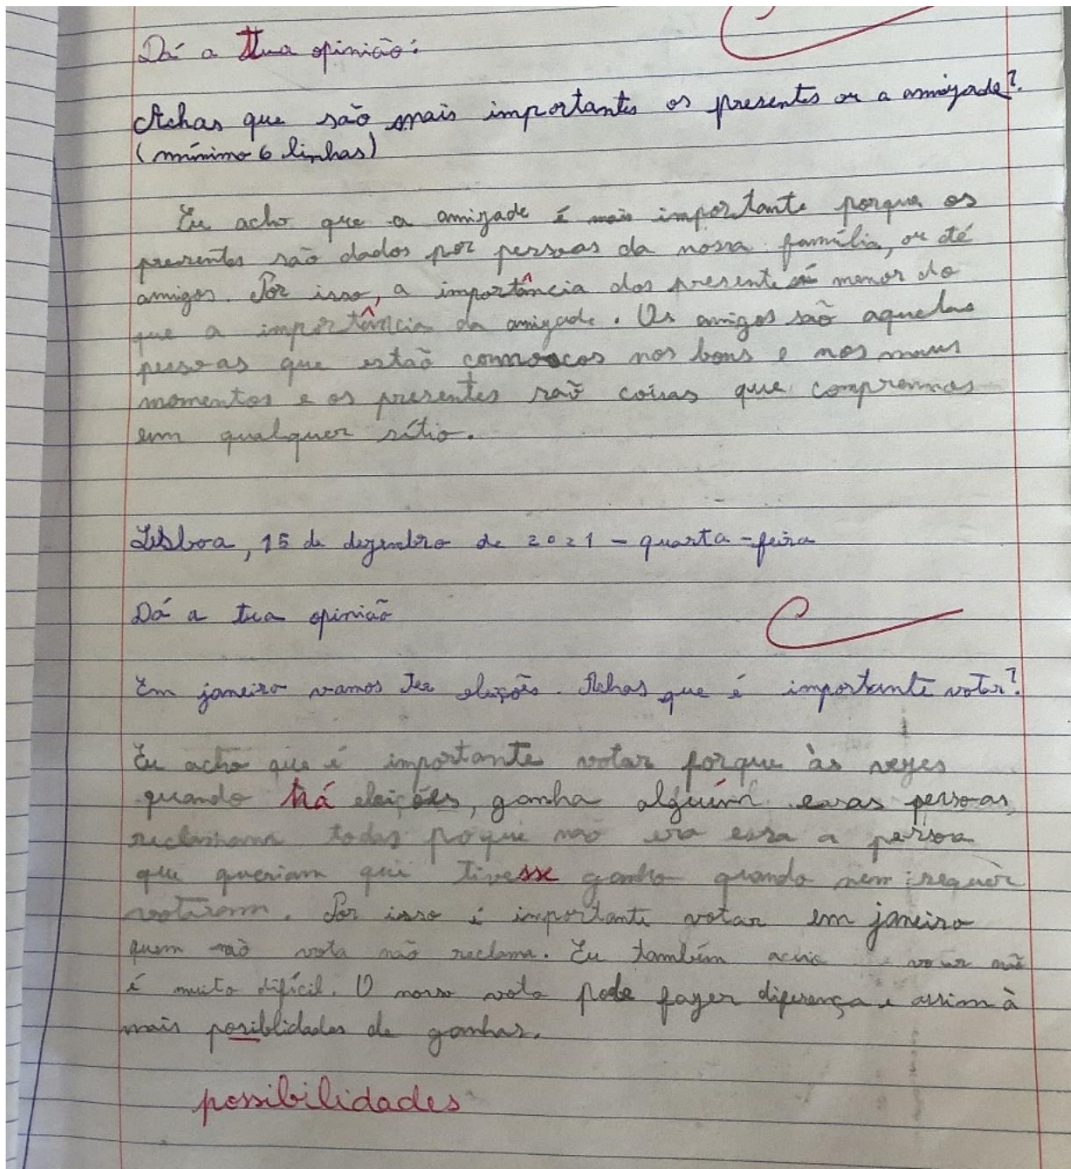 Dá a Tua opinião:
Achas que são mais importantes os presentes ou a amizade?
(mínimo 6 linhas)
Eu acho que a amizade é mais importante porque os
presentes são dados por pessoas da nossa família, ou até
amigos. Por isso, a importância dos presentes é menor do
que a importância da amizade. Os amigos são aquelas
pessoas que estão connoscos nos bons e nos maus
momentos e os presentes são coisas que compramos
em qualquer sítio.
Lisboa, 15 de dezembro de 2021 - quarta-feira
Dá a tua opinião
Em janeiro vamos ter eleições. Achas que é importante votar?
Eu acho que é importante votar porque às vezes
quando há eleições, ganha alguém essas pessoas
reclamam todas poque não era essa a pessoa
que queriam que tivesse ganho quando nem sequer
votaram. Por isso é importante votar em janeiro
quem não vota não reclama. Eu também acho votar não
é muito difícil. O nosso voto pode fazer diferença e assim à
mais posiblidades de ganhar.
possibilidades